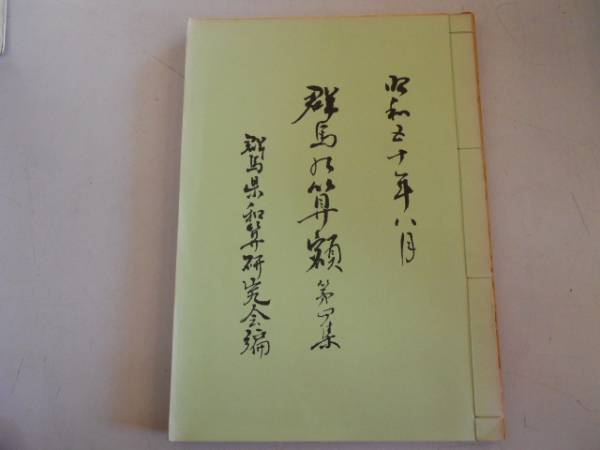 昭和五十年八月
群馬の算額 第四集
群馬県和算研究会編